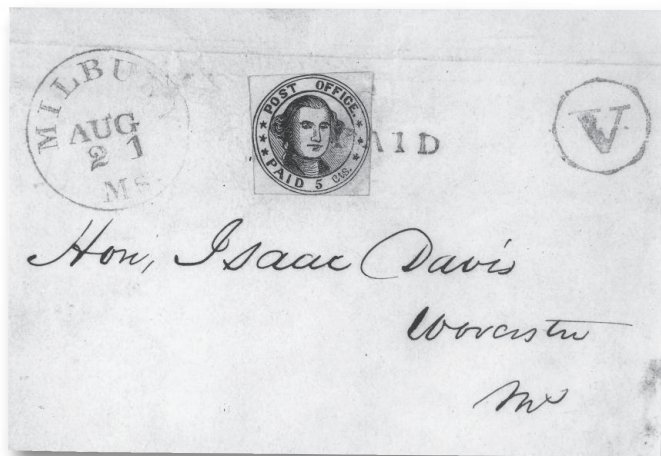 MILBU
AUG
21
Ms.
POST OFFICE.
PAID 5 cts.
PAID
V
Hon, Isaac Davis
Worcester
Ms